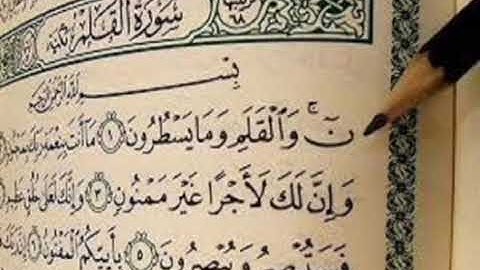 سُورَةُ الْقَلَمِ مَكِّيَّة ٦٨
بِسْمِ اللَّهِ الرَّحْمَٰنِ الرَّحِيمِ
نٓ ۚ وَالْقَلَمِ وَمَا يَسْطُرُونَ ١ مَا أَنتَ بِنِعْمَةِ رَبِّكَ بِمَجْنُونٍ
وَإِنَّ لَكَ لَأَجْرًا غَيْرَ مَمْنُونٍ ٣ وَإِنَّكَ لَعَلَىٰ خُلُقٍ عَظِيمٍ
فَسَتُبْصِرُ وَيُبْصِرُونَ ٥ بِأَييِّكُمُ الْمَفْتُونُ ٦ إِنَّ رَبَّكَ